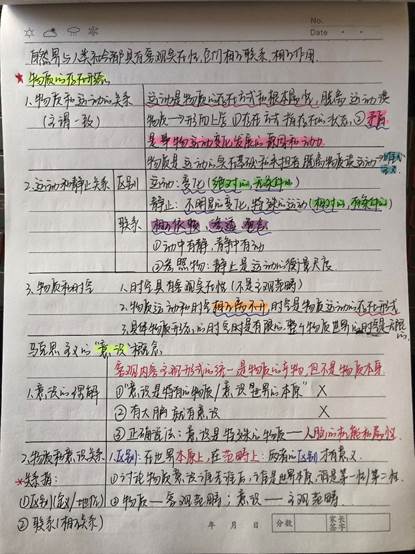 No.
Date
自然界与人类社会都具有客观实在性,它们相互联系、相互作用。
*物质的存在形态
1.物质和运动的关系 运动是物质的存在方式和根本属性,脱离运动谈
(主谓一致) 物质→形而上学 ①存在方式指存在的状态,②矛盾
是事物运动变化发展的原因和动力
物质是运动的实在基础和承担者 脱离物质谈运动→唯心主义
2.运动和静止关系 区别 运动:变化(绝对的,无条件的)
静止:不明显的变化,特殊的运动(相对的,有条件的)
联系 相互依赖,渗透,包含
①动中有静,静中有动
②参照物:静止是运动的衡量尺度
3.物质和时空 1.时空具有客观实在性(不是主观范畴)
2.物质运动和时空相互离不开,时空是物质运动的存在形式
3.具体物质形态的时空时是有限的,整个物质世界的时空是无限的。
马克思主义的"意识"概念
客观内容与主观形式的统一 是物质的产物,但不是物质本身
1.意识的误解 ①"意识是特殊的物质/意识是世界的本原" ×
②有大脑就有意识 ×
③正确说法:意识是特殊的物质——人脑的机能和属性
2.物质和意识关系 1.区别:在世界本原上,在范畴上:两者的区别才有意义。
*关系指: ①讨论物质意识谁先谁后,谁是世界本原,谓是第一性/第二性。
①区别(含义/地位) ②物质——客观范畴;意识——主观范畴
②联系(相互关系)
年 月 日 分数 家长签字